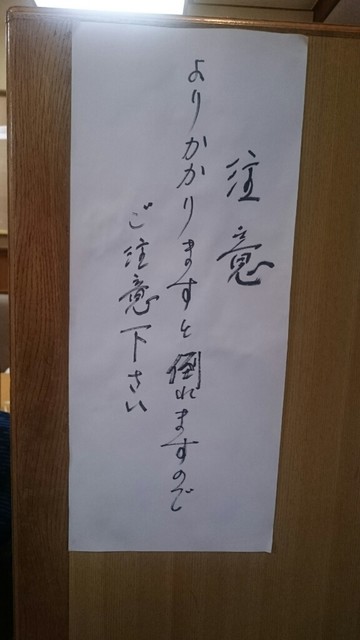 注意
よりかかりますと倒れますので
ご注意下さい